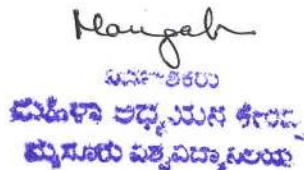 Mangala
ಮಹಿಳಾ ಅಧ್ಯಯನ ಕೇಂದ್ರ
ಮೈಸೂರು ವಿಶ್ವವಿದ್ಯಾನಿಲಯ